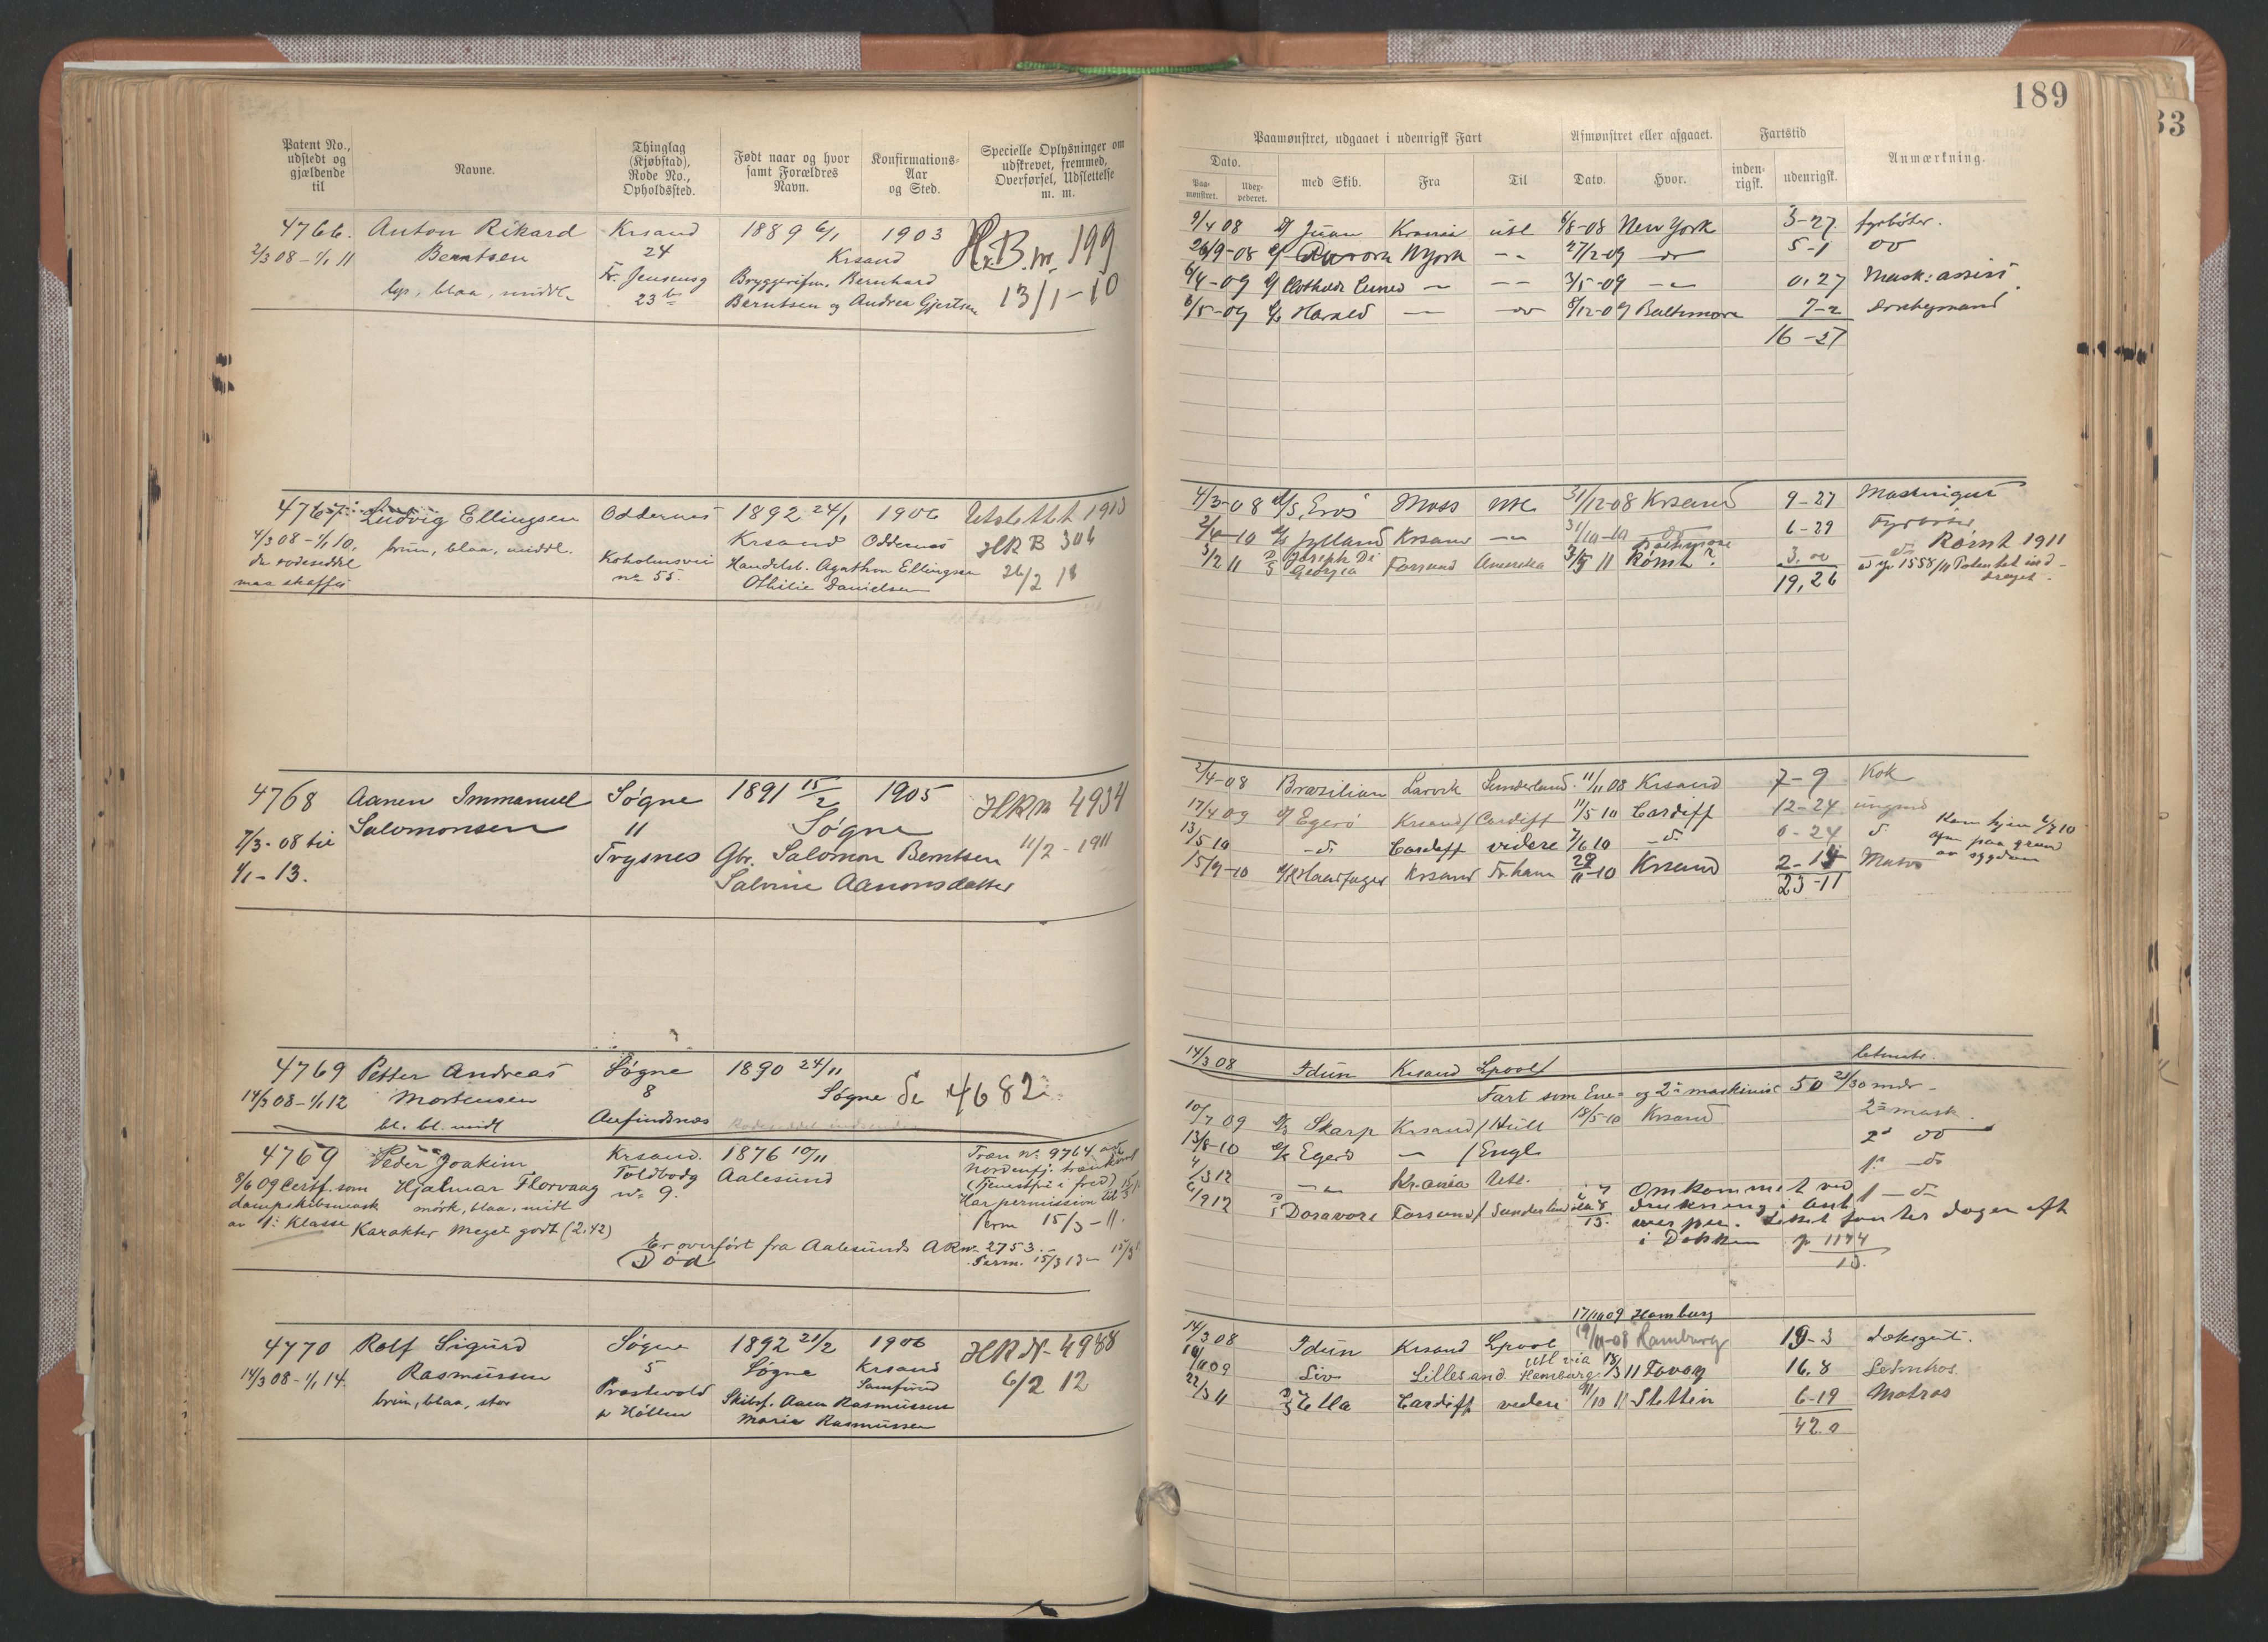 189
33
Patent No., udstedt og gjældende til
Navne.
Thinglag (Kjøbstad), Rode No., Opholdssted.
Født naar og hvor samt Forældres Navn.
Konfirmations-Aar og Sted.
Specielle Oplysninger om udskrevet, fremmed, Overførsel, Udslettelse m. m.
Paamønstret, udgaaet i udenrigsk Fart
Afmønstret eller afgaaet.
Fartstid
Anmærkning.
Dato.
med Skib.
Fra
Til
Dato.
Hvor.
inden-rigsk.
udenrigsk.
Paa-mønstret.
Uder-pederet.
4766. Anton Rikard Krsand 1889 6/1 1903 H.R.B.m. 199
2/3 08 - 1/1 11 Berntsen 24 Krsand
lys, blaa, middl. Fr. Jensensg Bryggerifm. Bernhard 13/1-10
23 Berntsen og Andrea Gjertsen
9/4 08 Juan Krania utl 6/8-08 New York 3-27 fyrbøter.
26/9-08 Aurora NYork 27/2-09 5-1 do
6/4-09 3/5-09 0.27 Mask: assist.
8/5-09 Harald do 8/12-09 Baltimore 7-2
16-27
4767 Ludvig Ellingsen Oddernes 1892 24/1 1906 Utslettet 1913
4/3 08 - 1/1 10, brun, blaa, middl. Krsand Oddernes HRB 306
du rodeseddel Koholmsvei Handelsb. Agathon Ellingsen 26/2
maa skaffes no 55. Othilie Danielsen
4/3-08 D/S Eros Moss utl 31/12-08 Krsand 9-27 Maskingut
2/4-10 Jylland Krsand 31/10-10 do 6-29 Fyrbøter
3/2 11 Joseph Di Georgia Farsund Amerika 3/5 11 Rømt? 3.00 do Rømt 1911
19,26 1558/11 Patentet ind-draget.
4768 Aanen Immanuel Søgne 1891 15/2 1905 HRM 4934
7/3-08 til Salomonsen 11 Søgne 11/2-1911
1/1-13. Trysnes Gbr. Salomon Berntsen
Salvine Aanonsdatter
2/4-08 Brazilian Larvik Sunderland 11/11 08 Krsand 7-9 Kok
17/4 09 Egerø Krsand/Cardiff 11/5 10 Cardiff 12-24 ungmd
13/5 10 do Cardiff videre 7/6 10 do 0-24 do Kom hjem 4/7 10
15/9-10 Haarfager Krsand Fr.havn 29/11-10 Krsand 2-14 Matros afm paa grund av sygdom
23-11
4769 Petter Andreas Søgne 1890 24/11
14/3 08 - 1/1 12 Mortensen 8 Søgne Se 4682
bl. bl. midt Aufindnæs
14/3 08 Idun Krsand Lpool letmatr.
4769 Peder Joakim Krsand. 1876 10/11 Træn No 9764
8/6 09 Certf. som Hjalmar Florvaag Toldbodg Aalesund Nordenfj.
dampskibsmask mørk, blaa, midt no 9. (Tjenestfri i fred)
av 1: Klasse Karakter Meget godt (2.42) Har permission til
Perm 15/3-11.
Er overført fra Aalesunds AR no 2753
Død Perm. 15/3 13-
Fart som Ene- og 2: maskinist 50 21/30 mdr-
10/7 09 D/S Skarp Krsand/Hull 18/5-10 Krsand 2: mask.
13/8-10 D/S Egerø /Engl 2: do
4/3 12 Kr.ania Utl. 1: do
6/9 12 Dosavore Farsund/Sunderland Omkommet ved 1 - do
drukning i Ant-
werpen. Liket funtet dagen eft
i Dokken p 1174/13.
4770 Rolf Sigurd Søgne 1892 21/2 1906 HRN- 4988
14/3 08 - 1/1 14. Rasmussen 5 Søgne Krsand 6/2 12
brun, blaa, stor Præstvold Skibsf. Aanen Rasmussen Samfund
p Høllen Marie Rasmussen
17/10 09 Hamburg
14/3 08 Idun Krsand Lpool 19/11-08 Hamburg 19-3 dæksgut.
Liv Lillesand utl via Hamburg 18/3 11 Fovey 16.8 Letmatros
22/3 11 Ella Cardiff videre 11/10 11 Stettin 6-19 Matros
42.0